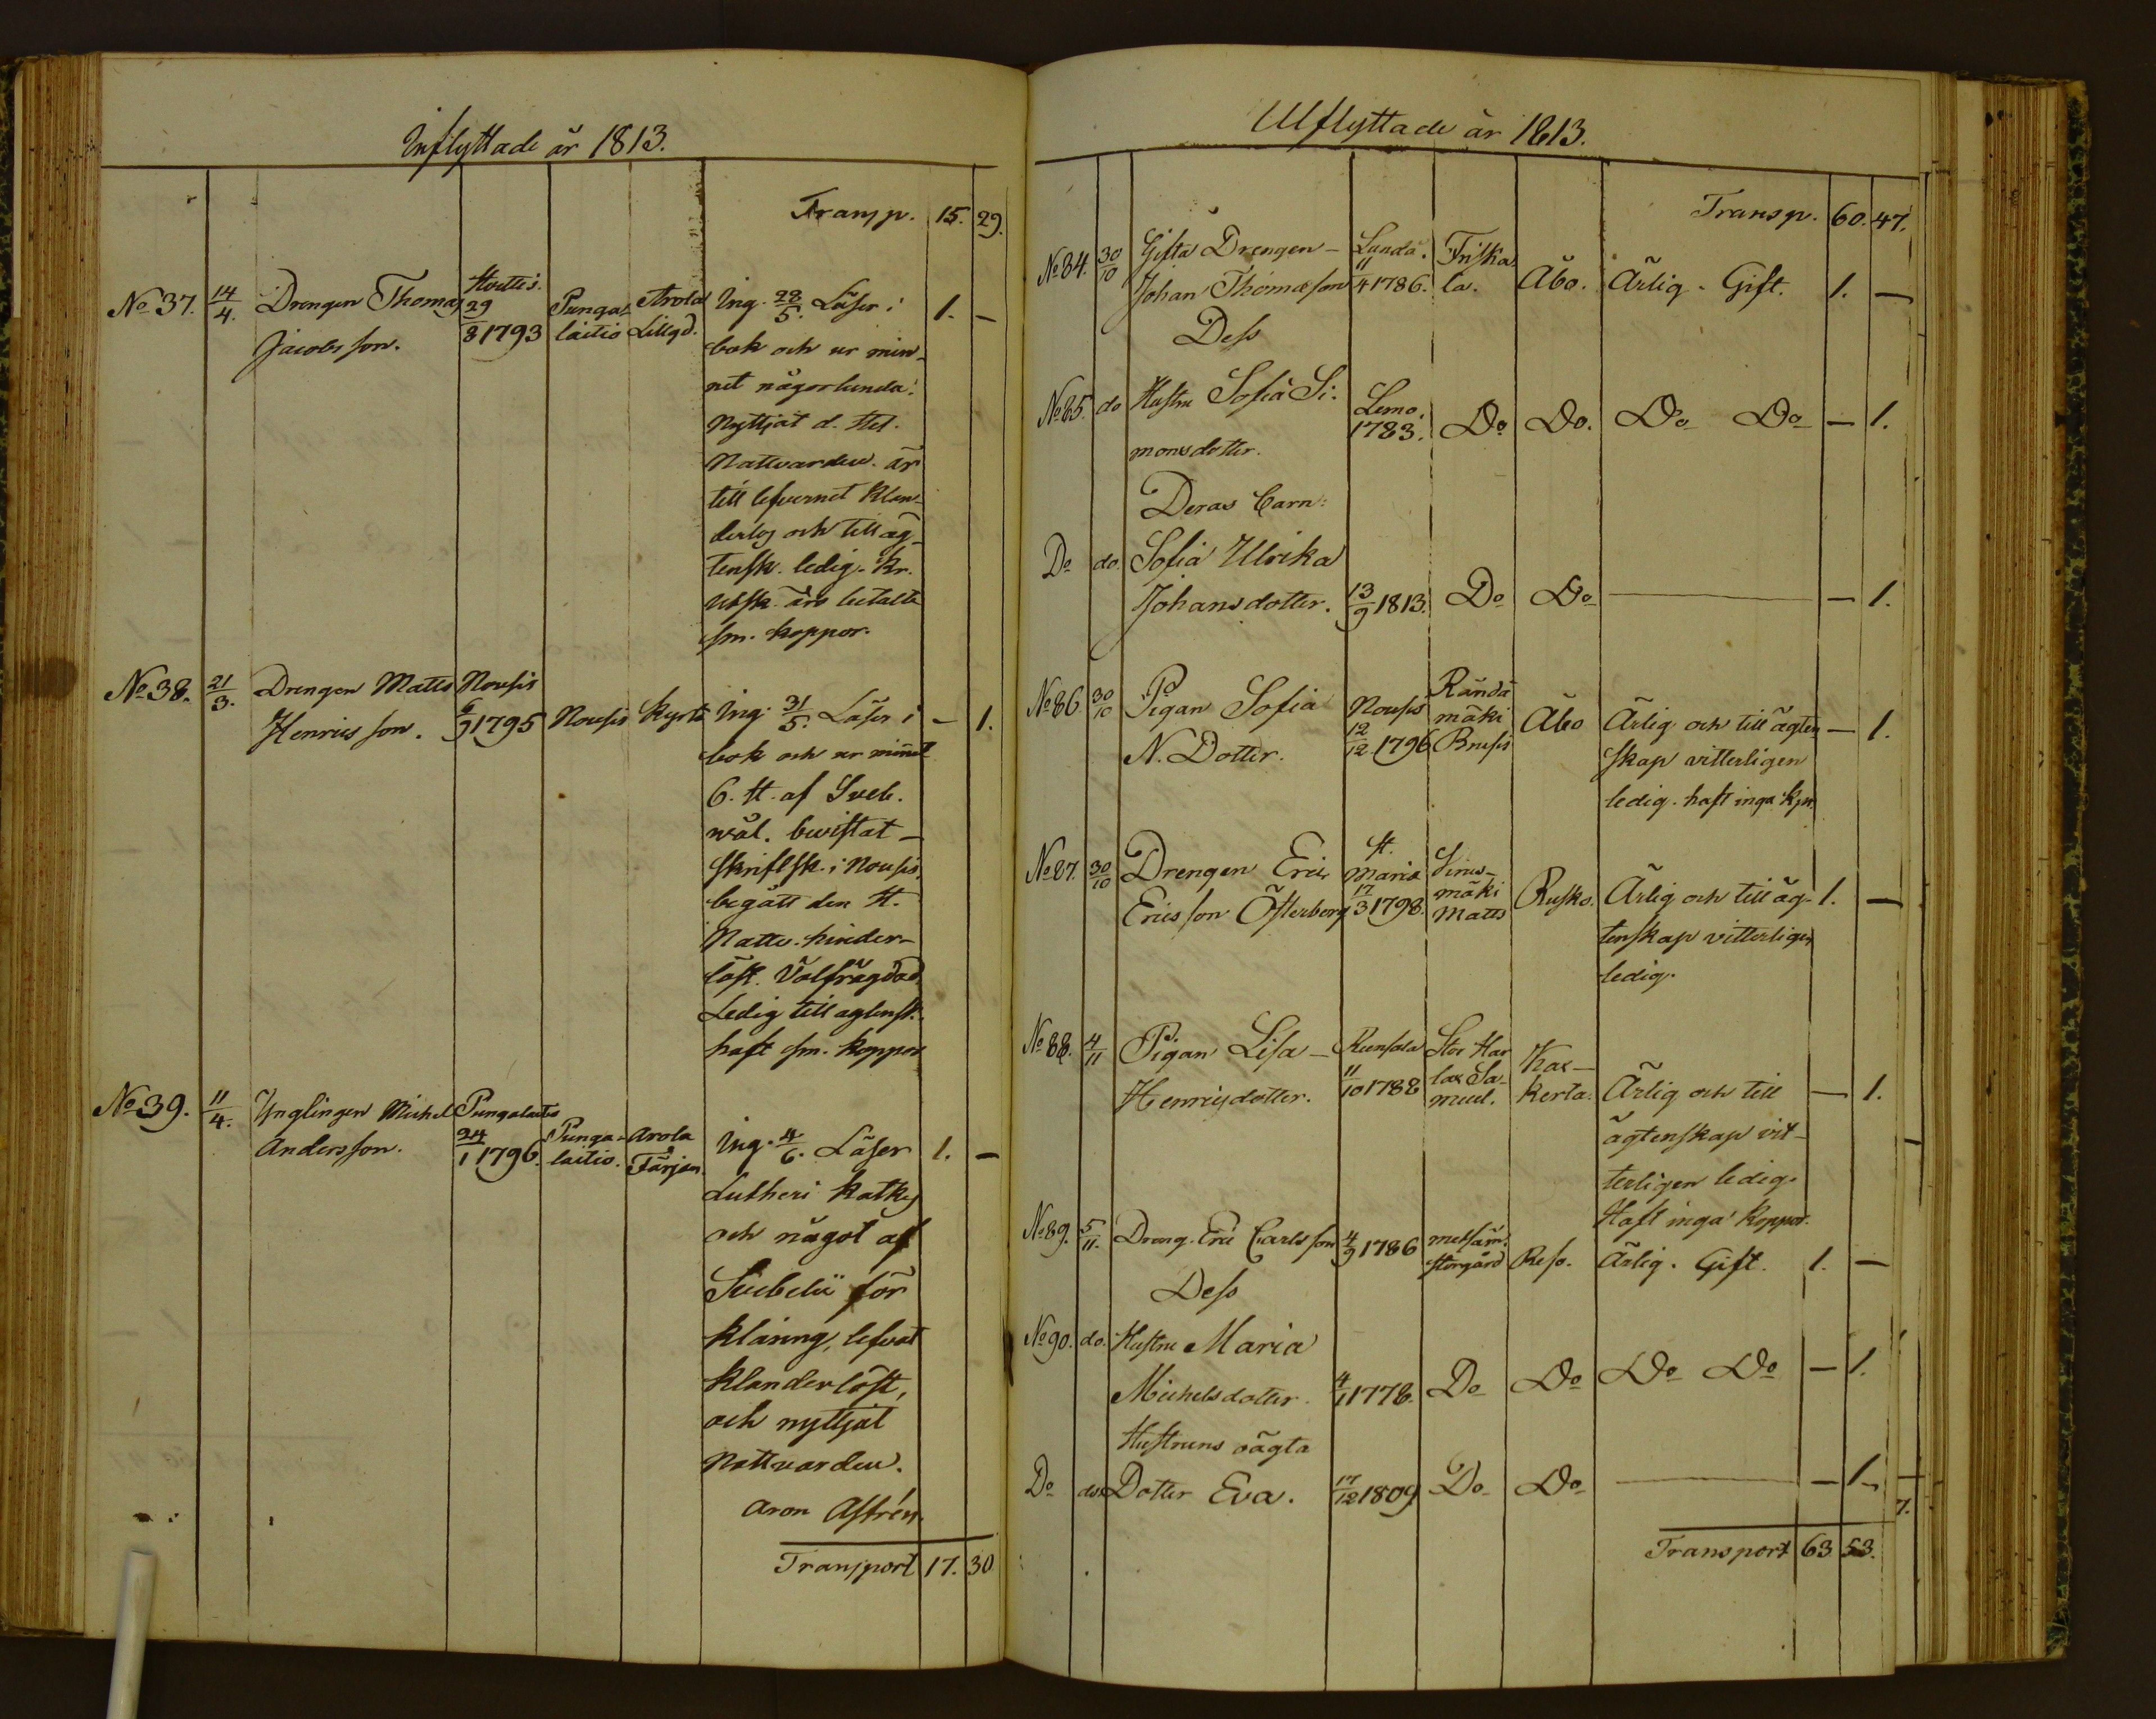 Inflyttade år 1813.
Transp. 15. 29.
No 37. 14/4. Drengen Thomas Jacobsson. Houttis. 29/8 1793 Pungalaitio Arola Lillgd. Ing. 28/5. Läser i 1. —
bok och ur min-
net någorlunda.
Nyttjat d. Hel.
Nattvarden. är
till lefvernet klan-
derlös och till äg-
tensk. ledig. Kr.
Utsk. äro betalte
sm. koppor.
No 38. 21/3. Drengen Matts Henricsson. Nousis 6/9 1795 Nousis Kyrö Ing. 31/5. Läser i — 1.
bok och ur minnet
6. H. af Sveb.
wäl. bevistat
skriftsk. i Nousis,
begått den H.
Nattv. hinder-
löst. Välfrägdad,
Ledig till agtensk.
haft sm. koppor
No 39. 11/4. Ynglingen Michel Andersson. Pungalaitio 24/1 1796. Pungalaitio. Arola Färjan. Ing. 4/6. Läser 1. —
Lutheri katkes
och något af
Svebelii för
klaring, lefvat
klanderlöst,
och nyttjat
Nattvarden.
Aron Astrén.
Transport 17. 30.
Utflyttade år 1813.
Transp. 60. 47.
No 84. 30/10 Gifta Drengen Johan Thomasson Lundä. 11/4 1786. Friskala. Åbo. Ärlig. Gift. 1. —
Dess
No 85. do Hustru Sofia Simonsdotter. Lemo. 1783. Do Do. Do Do — 1.
Deras barn:
Do do. Sofia Ulrika
Johansdotter. 13/9 1813. Do Do — 1.
No 86. 30/10 Pigan Sofia N. Dotter. Nousis 12/12 1796 Rändämäki Brusis Åbo Ärlig och till ägten — 1.
skap vitterligen
ledig. haft inga kpr.
No 87. 30/10 Drengen Eric Ericsson Österberg St. Maria 17/3 1798. Sirusmäki Matts Rusko. Ärlig och till äg- 1. —
tenskap vitterligen
ledig.
No 88. 4/11 Pigan Lisa Henricsdotter. Runsala 11/10 1788 Stor Harlax Samuel. Kakerta. Ärlig och till — 1.
ägtenskap vit-
terligen ledig.
Haft inga koppor.
No 89. 5/11. Dreng. Eric Carlsson 4/9 1786 Metsäm. Storgård Reso. Ärlig. Gift. 1. —
Dess
No 90. do. Hustru Maria
Michelsdotter. 4/1 1778. Do Do Do Do — 1.
Hustruns oägta
Do do Dotter Eva. 17/12 1809 Do Do — 1.
7.
Transport 63. 53.